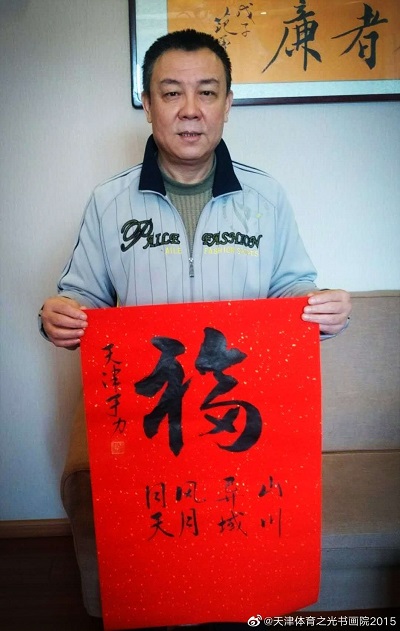 者廉
戊子
FASHION
福
山川
异域
风月
同天
天津
@天津体育之光书画院2015